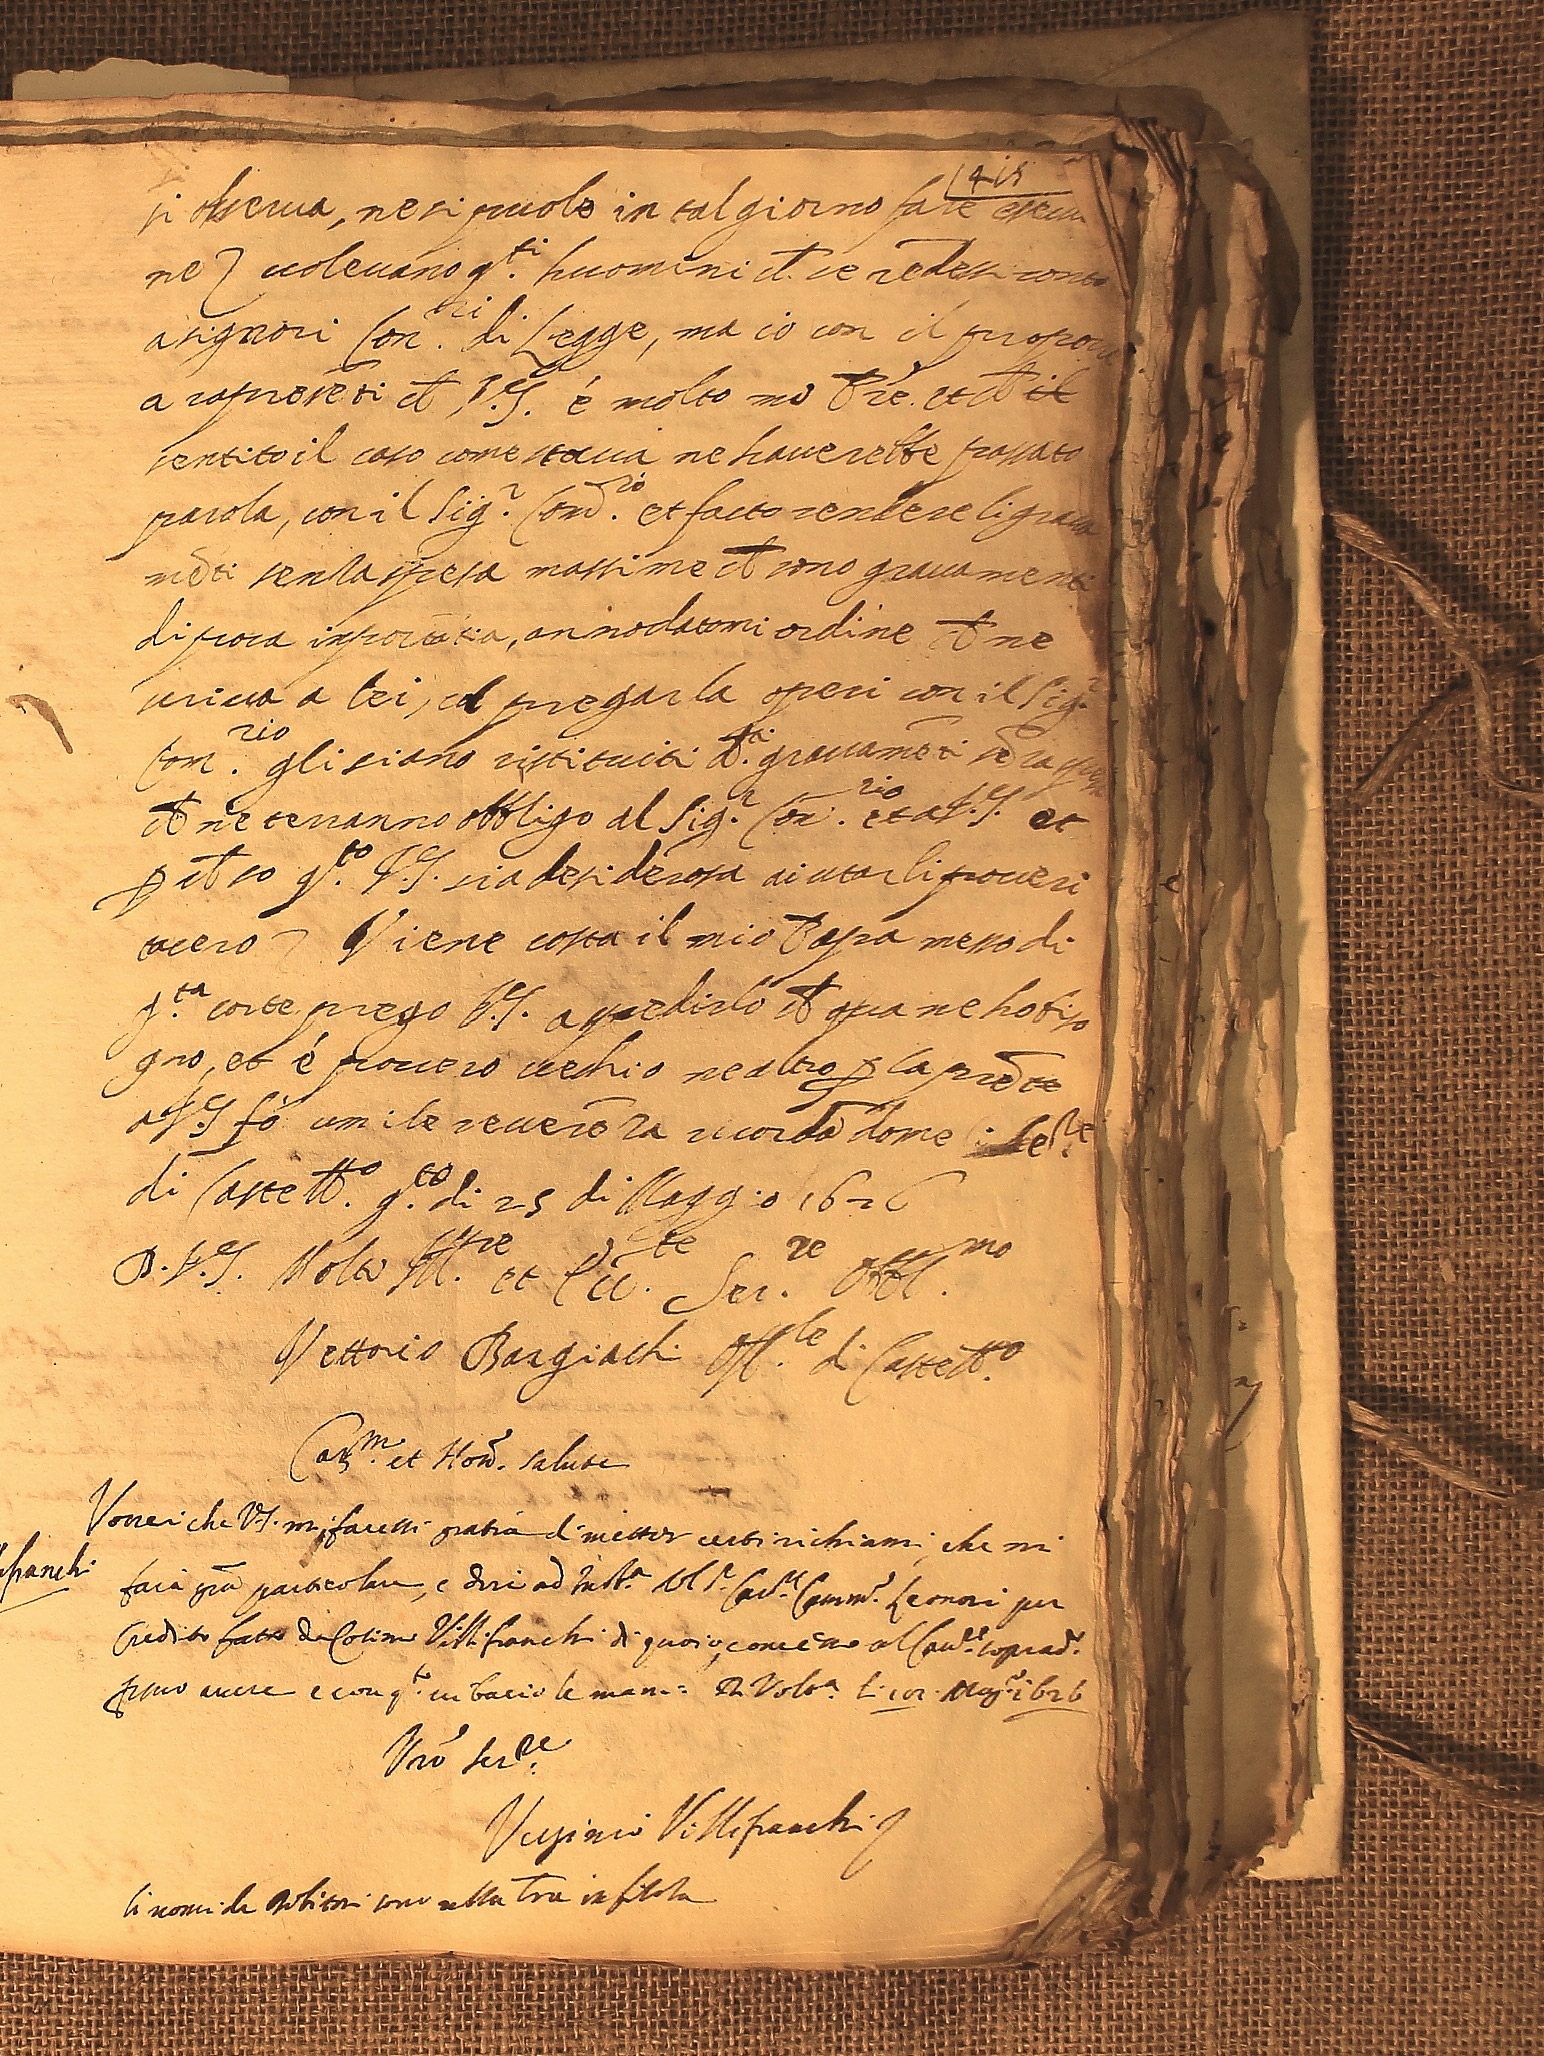 415
si osserva, ne si puole in tal giorno fare
ne volevano q.ti huomini ch ce redessi conto
a signori Con.rii di Legge, ma io con il propore
a rapresēti ch V.S. é molto mio Prē. et ch
sentito il caso come stava ne haverebbe passato
parola, con il Sig.r Com̄.rio et facto rendere li grava
mēti senza spesa massime ch sono gravamenti
di poca inportātia, annodatomi ordine ch ne
scriva a lei, el pregar la operi con il Sig.r
Com.rio gli siano ristituiti d.ti gravamēti sēza spesa
ch ne terranno obbligo al Sig.r Com̄.rio et a V.S. et
p ch so q.to V.S. sia desiderosa aiutar li poveri
tacero Viene costa il mio Papa messo di
q.ta corte prego V.S. a spedirlo ch qua ne ho biso
gno, et é povero vechio ne altro p la prēte
a V.S. fo umile reverēza ricordādome li se.re
di Castell.o q.to di 25 di Maggio 1626
D.V.S. Molto Ill.re et Ecc.te Ser.re Obbl.mo
Vettorio Bargiachi Off.le di Castell.o
Car.m et Hon. salute
Vorrei che V.S. mi facessi gratia di metter certi richiami, che mi
farà grā particolare, e dirà ad inst.a del S.r Cav.re Comm.r Leonori per
credito fatto da Cosimo Villifranchi di quoio, come esso al Cav.re soprad.o
avere e con q.to vi bacio le mani Di Vol.a li Mag.o 1626
franchi
Vrō ser.re
Verginio Villifranchi
li nomi de debitori sono nella lra in filza